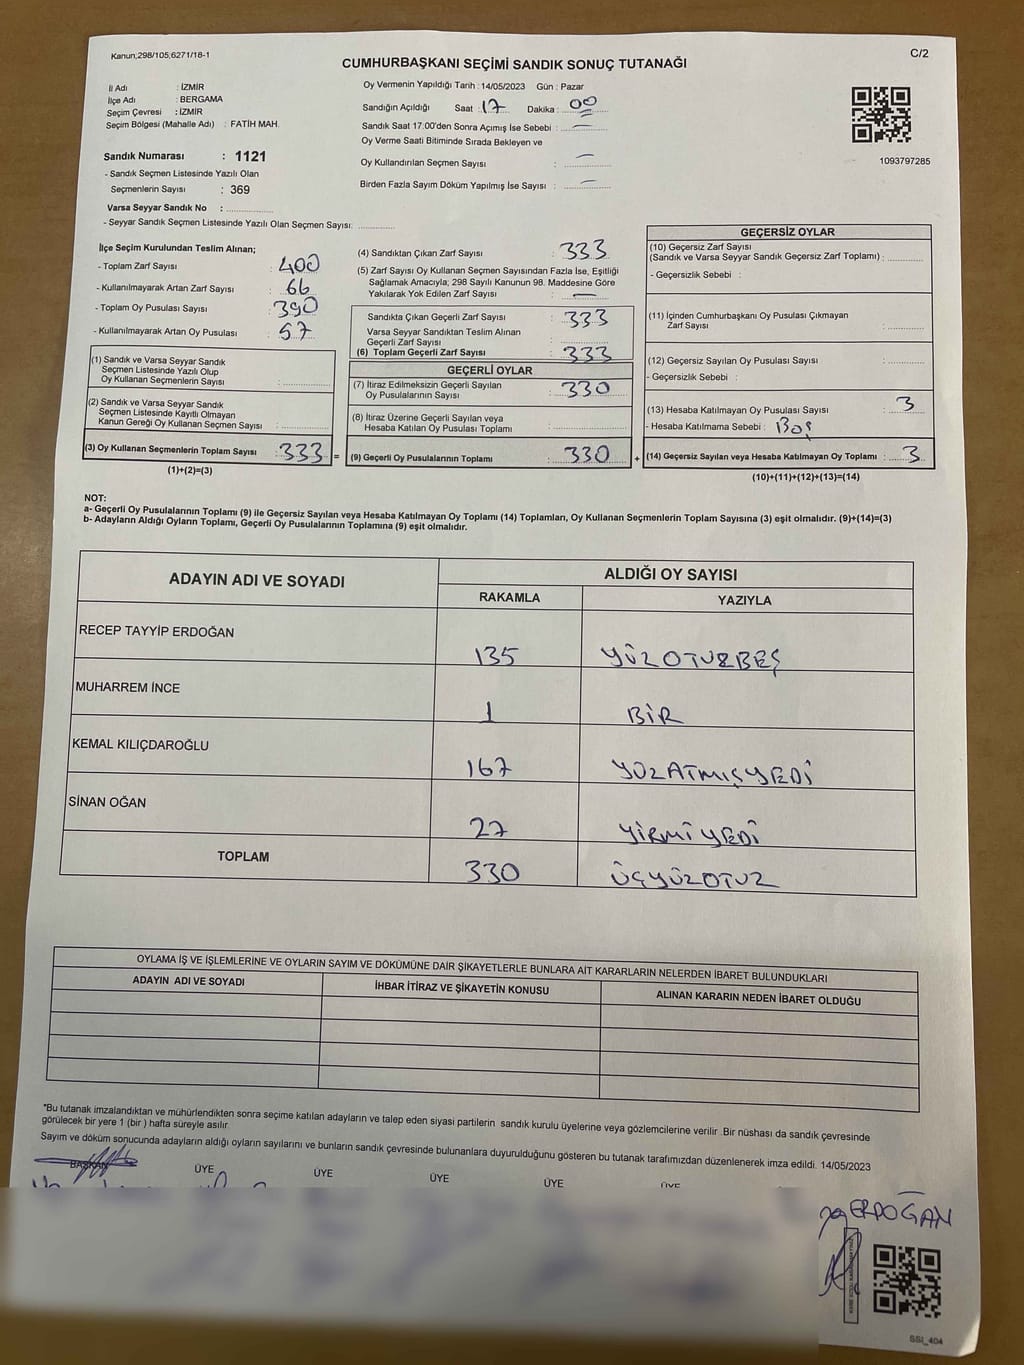 Kanun;298/105;6271/18-1
C/2
CUMHURBAŞKANI SEÇİMİ SANDIK SONUÇ TUTANAĞI
İl Adı : İZMİR
İlçe Adı : BERGAMA
Seçim Çevresi : İZMİR
Seçim Bölgesi (Mahalle Adı) : FATİH MAH.
Sandık Numarası : 1121
- Sandık Seçmen Listesinde Yazılı Olan
Seçmenlerin Sayısı : 369
Varsa Seyyar Sandık No :
- Seyyar Sandık Seçmen Listesinde Yazılı Olan Seçmen Sayısı:
Oy Vermenin Yapıldığı Tarih : 14/05/2023 Gün : Pazar
Sandığın Açıldığı Saat : 17 Dakika : 00
Sandık Saat 17:00'den Sonra Açımış İse Sebebi : —
Oy Verme Saati Bitiminde Sırada Bekleyen ve
Oy Kullandırılan Seçmen Sayısı : —
Birden Fazla Sayım Döküm Yapılmış İse Sayısı : —
1093797285
İlçe Seçim Kurulundan Teslim Alınan;
- Toplam Zarf Sayısı : 400
- Kullanılmayarak Artan Zarf Sayısı : 66
- Toplam Oy Pusulası Sayısı : 390
- Kullanılmayarak Artan Oy Pusulası : 57
(1) Sandık ve Varsa Seyyar Sandık
Seçmen Listesinde Yazılı Olup
Oy Kullanan Seçmenlerin Sayısı :
(2) Sandık ve Varsa Seyyar Sandık
Seçmen Listesinde Kayıtlı Olmayan
Kanun Gereği Oy Kullanan Seçmen Sayısı :
(3) Oy Kullanan Seçmenlerin Toplam Sayısı : 333 =
(1)+(2)=(3)
(4) Sandıktan Çıkan Zarf Sayısı : 333
(5) Zarf Sayısı Oy Kullanan Seçmen Sayısından Fazla İse, Eşitliği
Sağlamak Amacıyla; 298 Sayılı Kanunun 98. Maddesine Göre
Yakılarak Yok Edilen Zarf Sayısı : —
Sandıkta Çıkan Geçerli Zarf Sayısı : 333
Varsa Seyyar Sandıktan Teslim Alınan
Geçerli Zarf Sayısı :
(6) Toplam Geçerli Zarf Sayısı : 333
GEÇERLİ OYLAR
(7) İtiraz Edilmeksizin Geçerli Sayılan
Oy Pusulalarının Sayısı : 330
(8) İtiraz Üzerine Geçerli Sayılan veya
Hesaba Katılan Oy Pusulası Toplamı :
(9) Geçerli Oy Pusulalarının Toplamı : 330 +
GEÇERSİZ OYLAR
(10) Geçersiz Zarf Sayısı
(Sandık ve Varsa Seyyar Sandık Geçersiz Zarf Toplamı) :
- Geçersizlik Sebebi :
(11) İçinden Cumhurbaşkanı Oy Pusulası Çıkmayan
Zarf Sayısı :
(12) Geçersiz Sayılan Oy Pusulası Sayısı :
- Geçersizlik Sebebi :
(13) Hesaba Katılmayan Oy Pusulası Sayısı : 3
- Hesaba Katılmama Sebebi : Boş
(14) Geçersiz Sayılan veya Hesaba Katılmayan Oy Toplamı : 3
(10)+(11)+(12)+(13)=(14)
NOT:
a- Geçerli Oy Pusulalarının Toplamı (9) ile Geçersiz Sayılan veya Hesaba Katılmayan Oy Toplamı (14) Toplamları, Oy Kullanan Seçmenlerin Toplam Sayısına (3) eşit olmalıdır. (9)+(14)=(3)
b- Adayların Aldığı Oyların Toplamı, Geçerli Oy Pusulalarının Toplamına (9) eşit olmalıdır.
ADAYIN ADI VE SOYADI
ALDIĞI OY SAYISI
RAKAMLA YAZIYLA
RECEP TAYYİP ERDOĞAN 135 YÜZOTUZBEŞ
MUHARREM İNCE 1 BİR
KEMAL KILIÇDAROĞLU 167 YÜZATMIŞYEDİ
SİNAN OĞAN 27 YİRMİYEDİ
TOPLAM 330 ÜÇYÜZOTUZ
OYLAMA İŞ VE İŞLEMLERİNE VE OYLARIN SAYIM VE DÖKÜMÜNE DAİR ŞİKAYETLERLE BUNLARA AİT KARARLARIN NELERDEN İBARET BULUNDUKLARI
ADAYIN ADI VE SOYADI İHBAR İTİRAZ VE ŞİKAYETİN KONUSU ALINAN KARARIN NEDEN İBARET OLDUĞU
*Bu tutanak imzalandıktan ve mühürlendikten sonra seçime katılan adayların ve talep eden siyasi partilerin sandık kurulu üyelerine veya gözlemcilerine verilir .Bir nüshası da sandık çevresinde
görülecek bir yere 1 (bir ) hafta süreyle asılır.
Sayım ve döküm sonucunda adayların aldığı oyların sayılarını ve bunların sandık çevresinde bulunanlara duyurulduğunu gösteren bu tutanak tarafımızdan düzenlenerek imza edildi. 14/05/2023
BAŞKAN ÜYE ÜYE ÜYE ÜYE ÜYE
ERDOĞAN
SSI_404